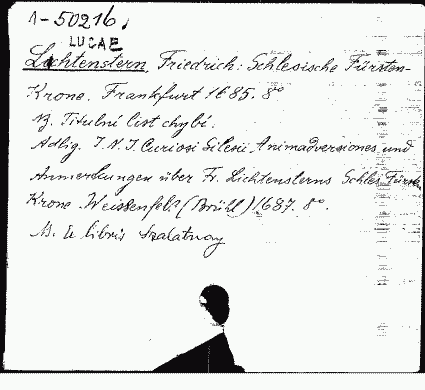 1-50216.
LUCAE
Lichtenstern, Friedrich: Schlesische Fürsten-
Krone. Frankfurt 1685. 8°
N. Titulní list chybí.
Adlig. I. N. I. Curiosi Silesii Animadversiones und
Anmerkungen über Fr. Lichtensterns Schles. Fürsten
Krone. Weissenfels (Brühl) 1687. 8°.
N. E libris Szalatnay